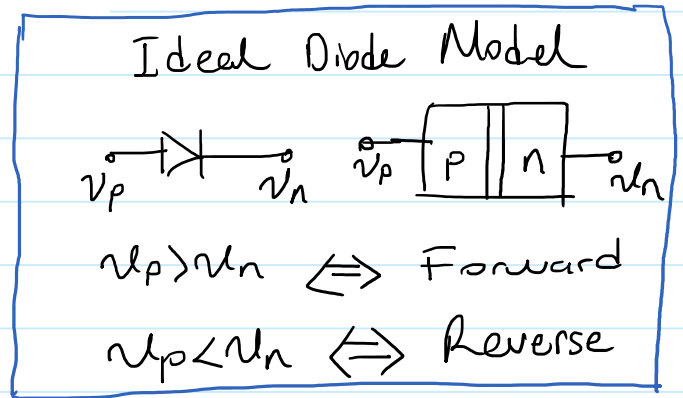 Ideal Diode Model
Vp Vn Vp p n Vn
Vp>Vn ⇔ Forward
Vp<Vn ⇔ Reverse